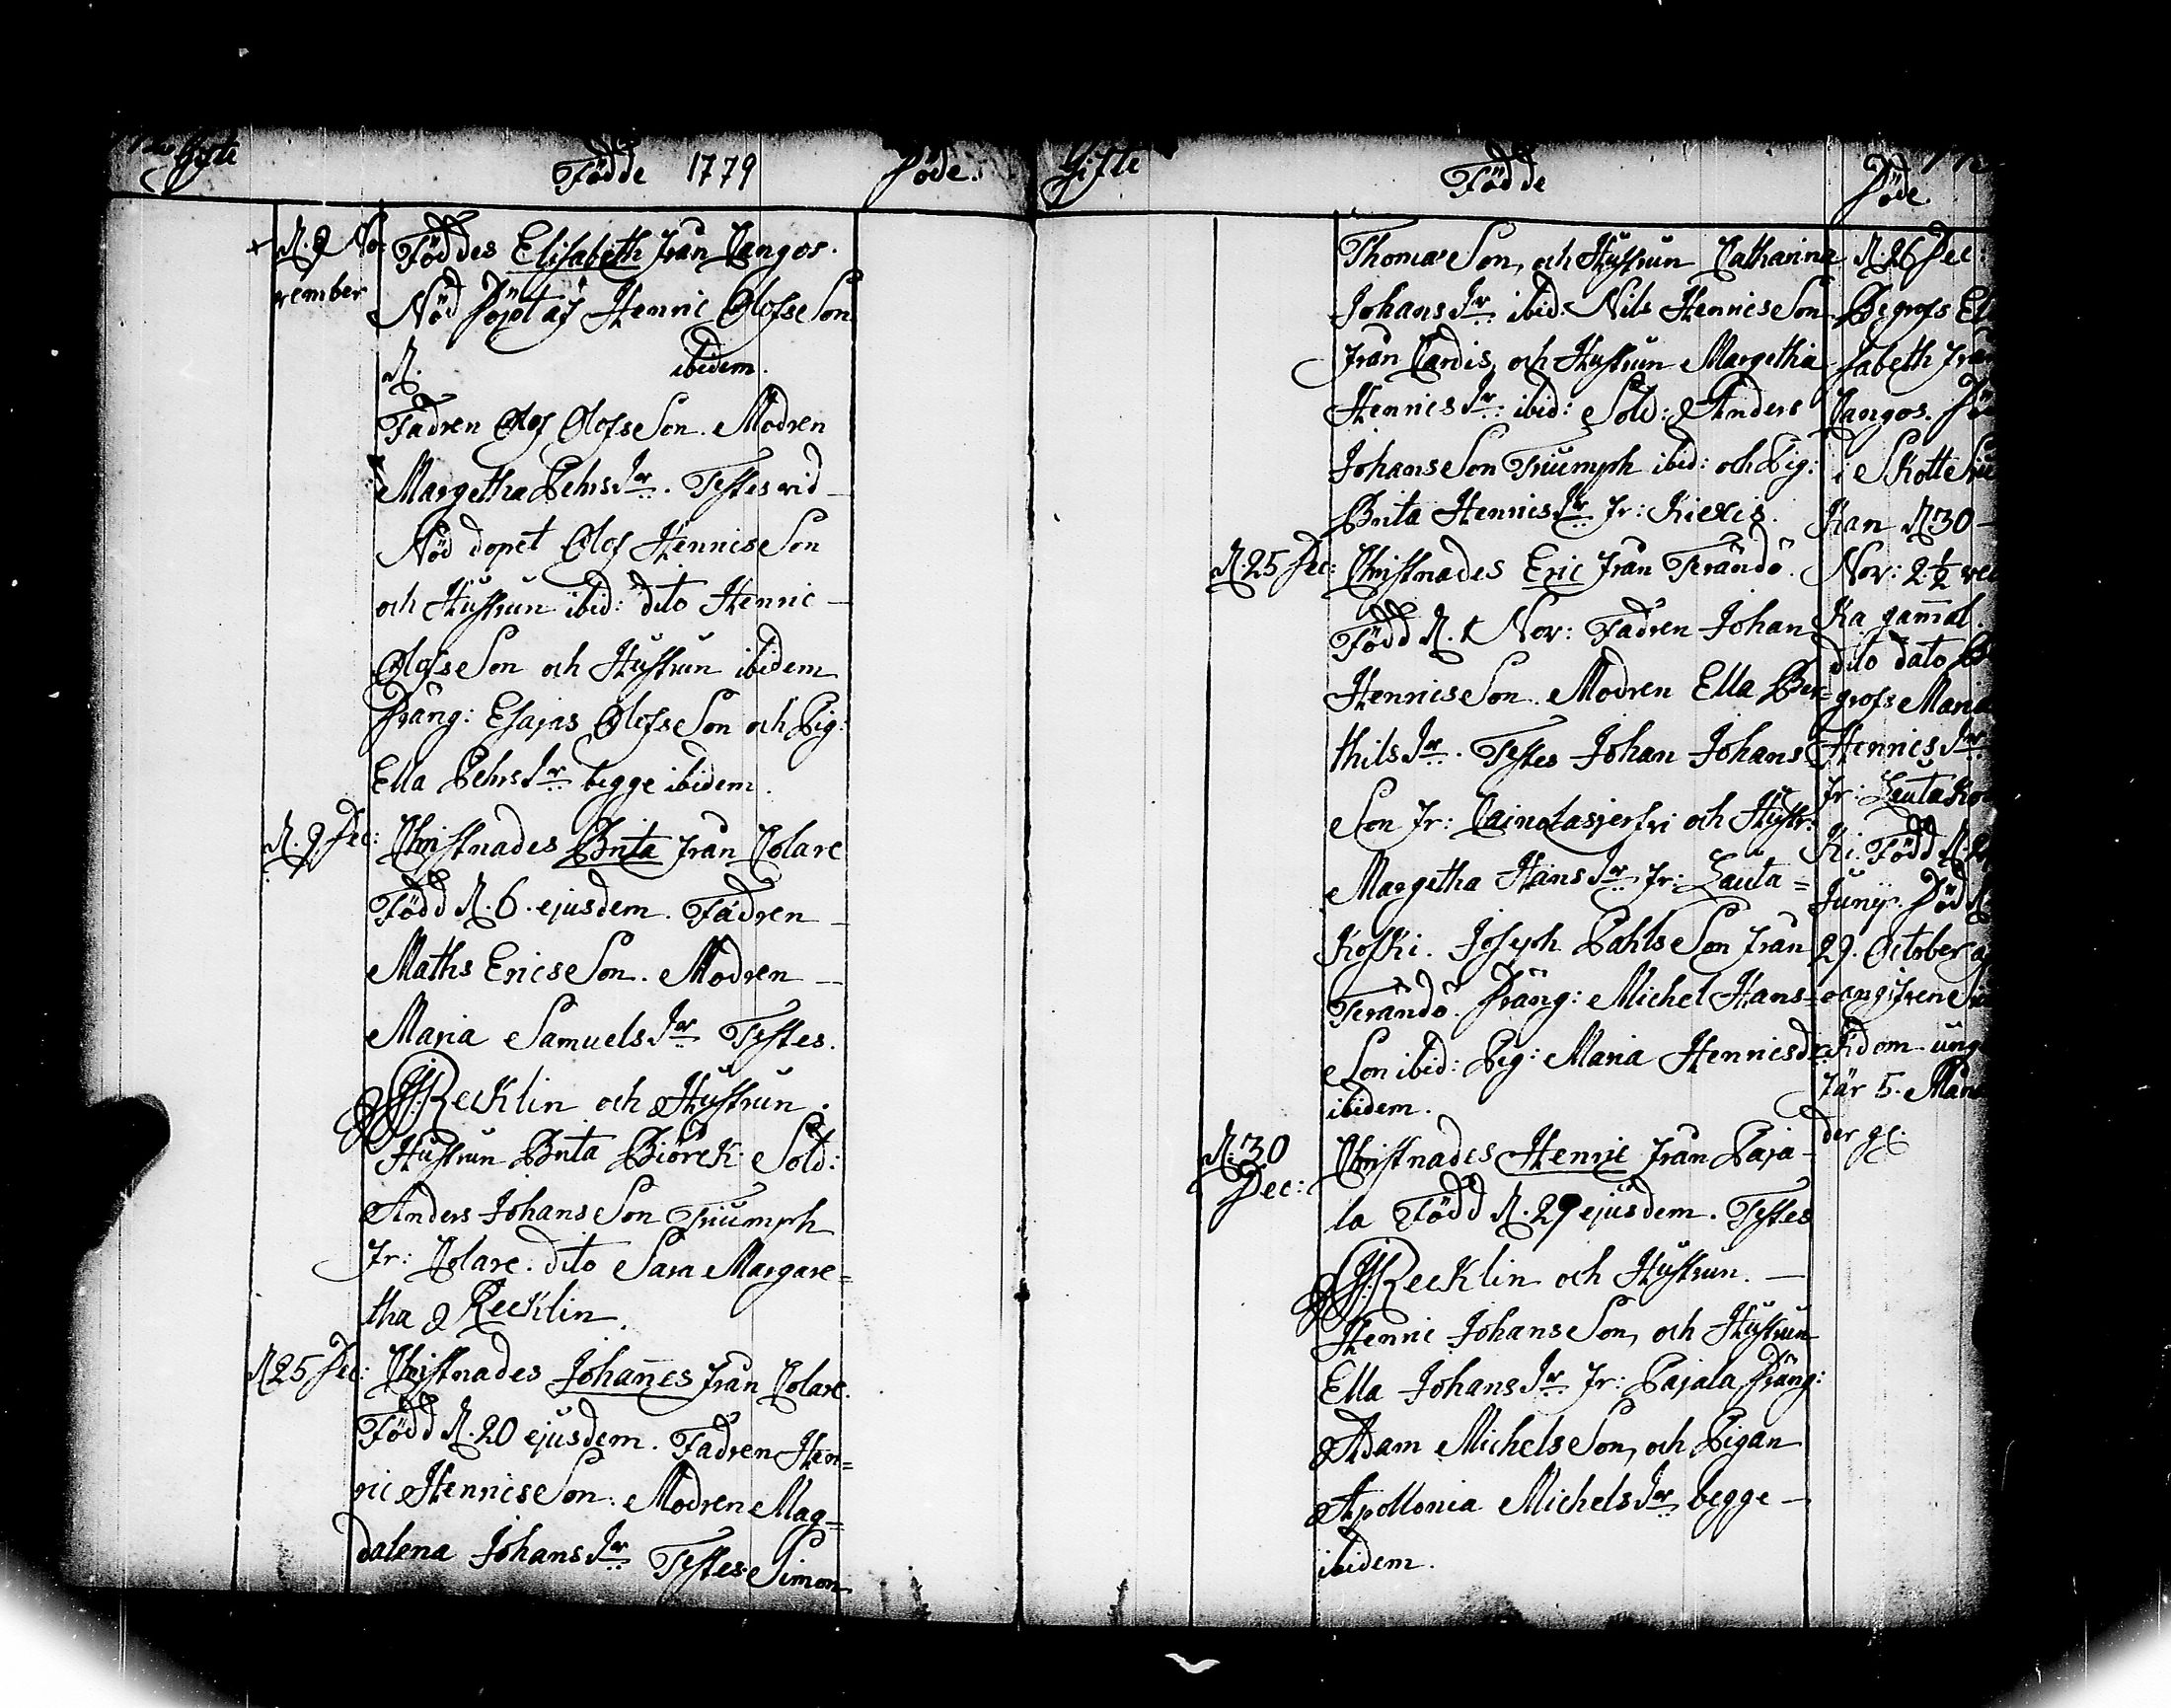 Gifte
Födde 1779
Döde.
+ D. 9 No-
vember
Föddes Elisabeth från Cangos.
Nöd Döpt af Henric Olofs Son
D. ibidem.
Fadren Olof Olofs Son. Modren
Margetha Pehrs Dr. Testes vid
Nöd dopet Olof Henrics Son
och Hustrun ibid: dito Henric
Olofs Son och Hustrun ibidem
Dräng: Esajas Olofs Son och Pig:
Ella Pehrs Dr begge ibidem.
D. 9 Dec:
Christnades Brita från Colare
Född D. 6. ejusdem. Fadren
Maths Erics Son. Modren
Maria Samuels Dr Testes.
Recklin och Hustrun.
Hustrun Brita Biörck Sold:
Anders Johans Son Triumph
fr: Colare: dito Sara Margare=
tha Recklin.
D 25 Dec:
Christnades Johañes från Colare.
Född D. 20 ejusdem. Fadren Hen=
ric Henrics Son. Modren Mag=
dalena Johans Dr Testes. Simon
Gifte
Födde
Döde.
Thomæ Son, och Hustrun Catharina
Johans Dr ibid: Nils Henrics Son
från Cardis, och Hustrun Margetha
Henrics Dr: ibid: Sold: Anders
Johans Son Triumph ibid: och Pig:
Brita Henrics Dr fr: Kiexis.
D. 25 Dec:
Christnades Eric från Terändö.
Född D. 1 Nov: Fadren Johan
Henrics Son. Modren Ella Ber=
thils Dr. Testes Johan Johans
Son fr: Cainolasjerfvi och Hustr:
Margetha Hans Dr fr: Lauta=
Koski. Joseph Påhls Son från
Terändö. Dräng: Michel Hans=
Son ibid: Pig: Maria Henricsdr
ibidem.
D. 30
Dec:
Christnades Henric från Paja-
la Född D. 29 ejusdem. Testes
Recklin och Hustrun.
Henric Johans Son, och Hustrun
Ella Johans Dr fr: Pajala Dräng:
Adam Michels Son, och Pigan
Apollonia Michels Dr begge
ibidem.
D. 26 Dec:
Begrofs El
sabeth från
Cangos. Dö
i Skotte
Kan D 30
Nov: 2½ vec
Ka gam̄al.
dito dato B
grofs Maria
Henrics Dr
fr: Lauta Ko
Ki. Född D.
Junij. Död D
29. October af
oangifven
Kdom ung
fär 5. Måna
der gl: